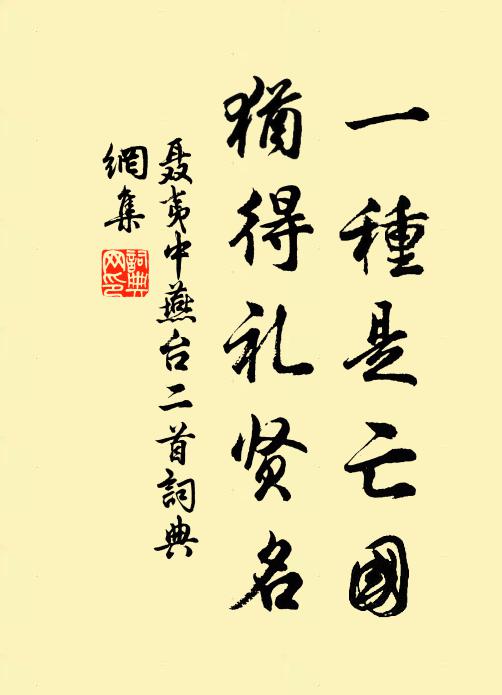 一種是亡國
猶得礼贤名
聂夷中燕台二首詞典
網集
詞典网印